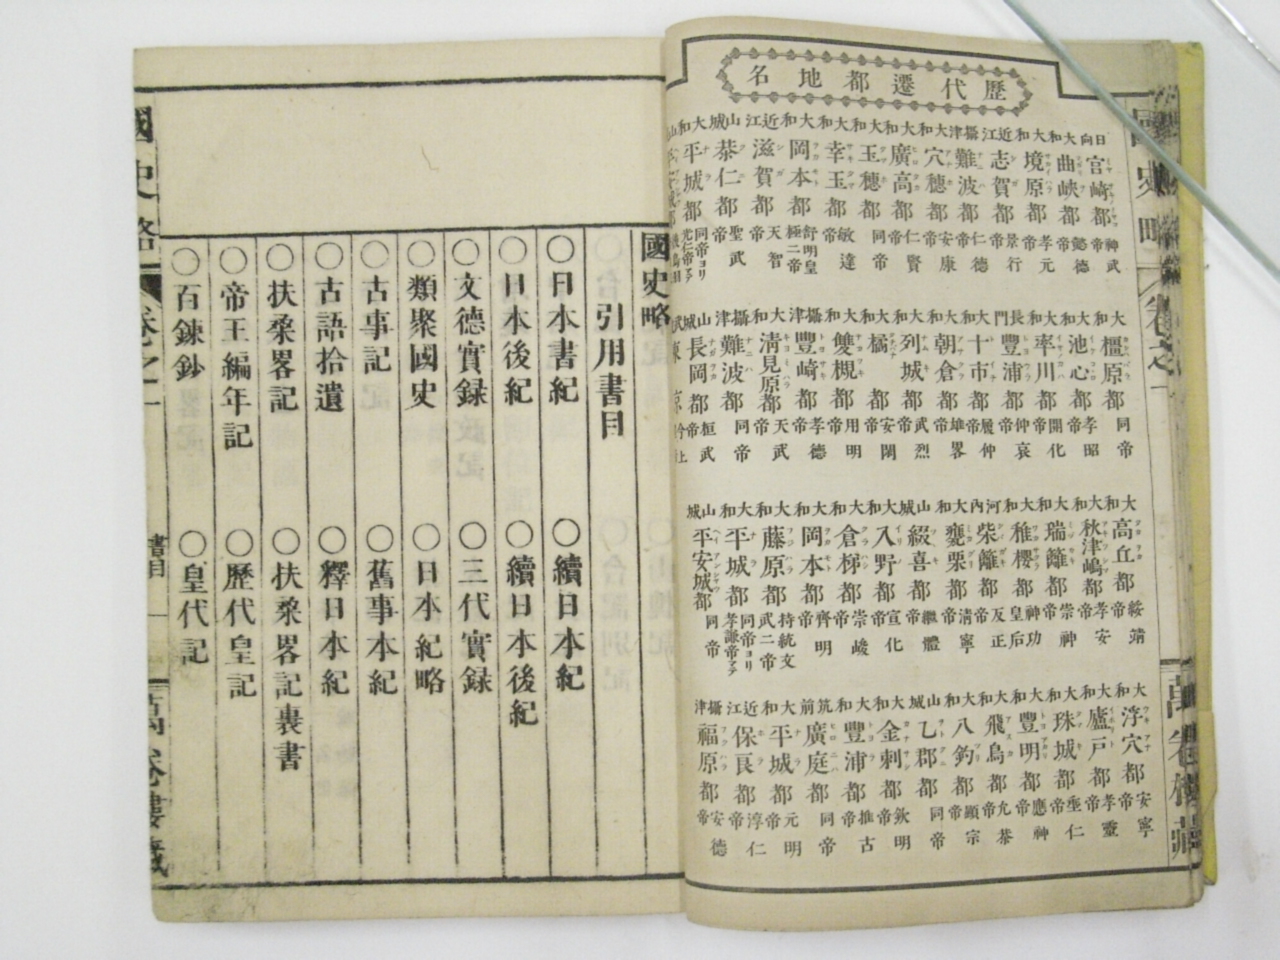 歷代遷都地名
日向 宮崎都 神武帝
大和 曲峽都 懿德帝
大和 境原都 孝元帝
近江 志賀都 景行帝
攝津 難波都 仁德帝
大和 穴穗都 安康帝
大和 廣高都 仁賢帝
大和 玉穗都 同帝
大和 幸玉都 敏達帝
大和 岡本都 舒明皇極二帝
近江 滋賀都 天智帝
山城 恭仁都 聖武帝
大和 平城都
大和 橿原都 同帝
大和 池心都 孝昭帝
大和 率川都 開化帝
長門 豐浦都 仲哀帝
大和 十市都 履仲帝
大和 朝倉都 雄畧帝
大和 列城都 武烈帝
大和 橘都 安閑帝
大和 雙槻都 用明帝
攝津 豐崎都 孝德帝
大和 淸見原都 天武帝
攝津 難波都 同帝
山城 長岡都 桓武帝
東京
大和 高丘都 綏靖帝
大和 秋津嶋都 孝安帝
大和 瑞籬都 崇神帝
大和 稚櫻都 神功皇后
河內 柴籬都 反正帝
大和 甕栗都 淸寧帝
山城 綴喜都 繼體帝
大和 入野都 宣化帝
大和 倉梯都 崇峻帝
大和 岡本都 齊明帝
大和 藤原都 持統文武二帝
大和 平城都 同帝ヨリ孝謙帝マデ
山城 平安城都 同帝
大和 浮穴都 安寧帝
大和 廬戸都 孝靈帝
大和 珠城都 垂仁帝
大和 豐明都 應神帝
大和 飛鳥都 允恭帝
大和 八釣都 顯宗帝
山城 乙郡都 同帝
大和 金刺都 欽明帝
大和 豐浦都 推古帝
筑前 廣庭都 同帝
大和 平城都 元明帝
近江 保良都 淳仁帝
攝津 福原都 安德帝
國史略
引用書目
○日本書紀 ○續日本紀
○日本後紀 ○續日本後紀
○文德實録 ○三代實録
○類聚國史 ○日本紀略
○古事記 ○舊事本紀
○古語拾遺 ○釋日本紀
○扶桒畧記 ○扶桒畧記裏書
○帝王編年記 ○歷代皇記
○百鍊鈔 ○皇代記
國史略 卷之一 書目 一 萬卷樓藏